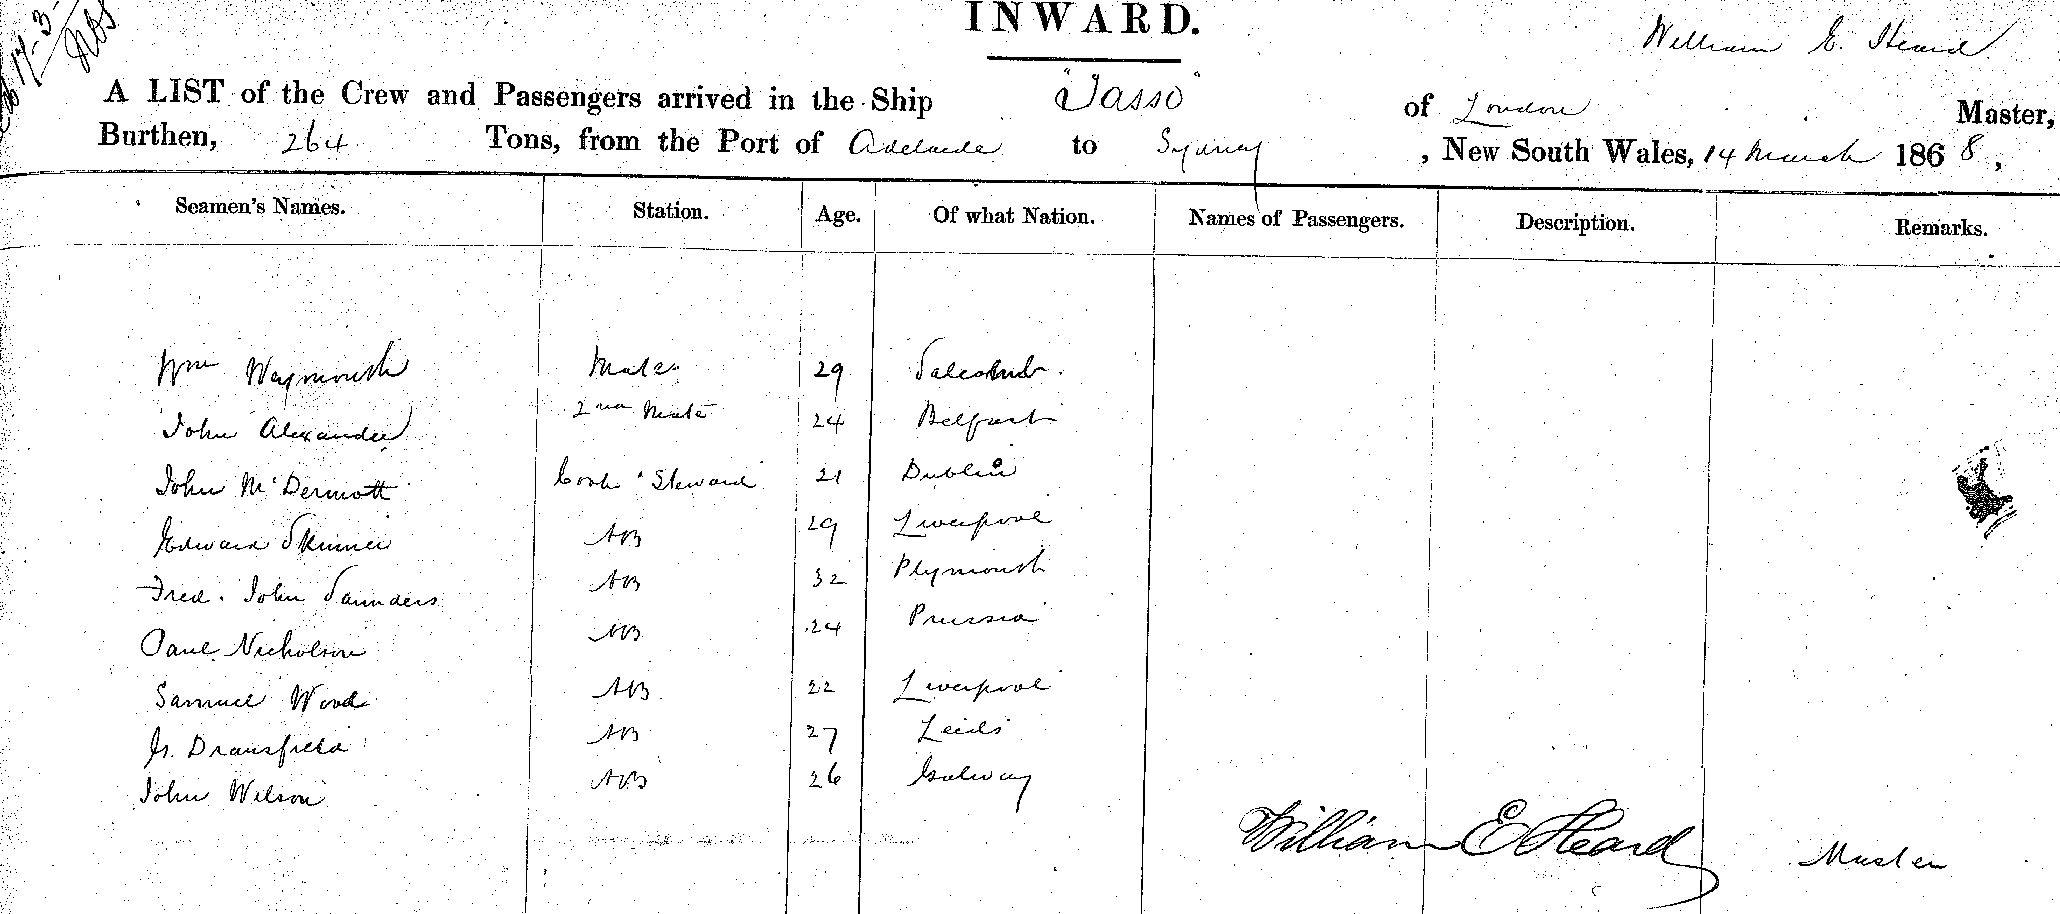 INWARD.
William E. Heard
A LIST of the Crew and Passengers arrived in the Ship "Tasso" of London Master,
Burthen, 264 Tons, from the Port of Adelaide to Sydney, New South Wales, 14 March 1868,
Seamen's Names. Station. Age. Of what Nation. Names of Passengers. Description. Remarks.
Wm Waymouth Mate 29 Salcomb.
John Alexander 2nd Mate 24 Belfast
John McDermott Cook & Steward 21 Dublin
Edward Skinner AB 29 Liverpool
Fred. John Saunders AB 32 Plymouth
Paul Nicholson AB 24 Prussia
Samuel Wood AB 22 Liverpool
Dransfield AB 27 Leeds
John Wilson AB 26 Galway
William E Heard Master